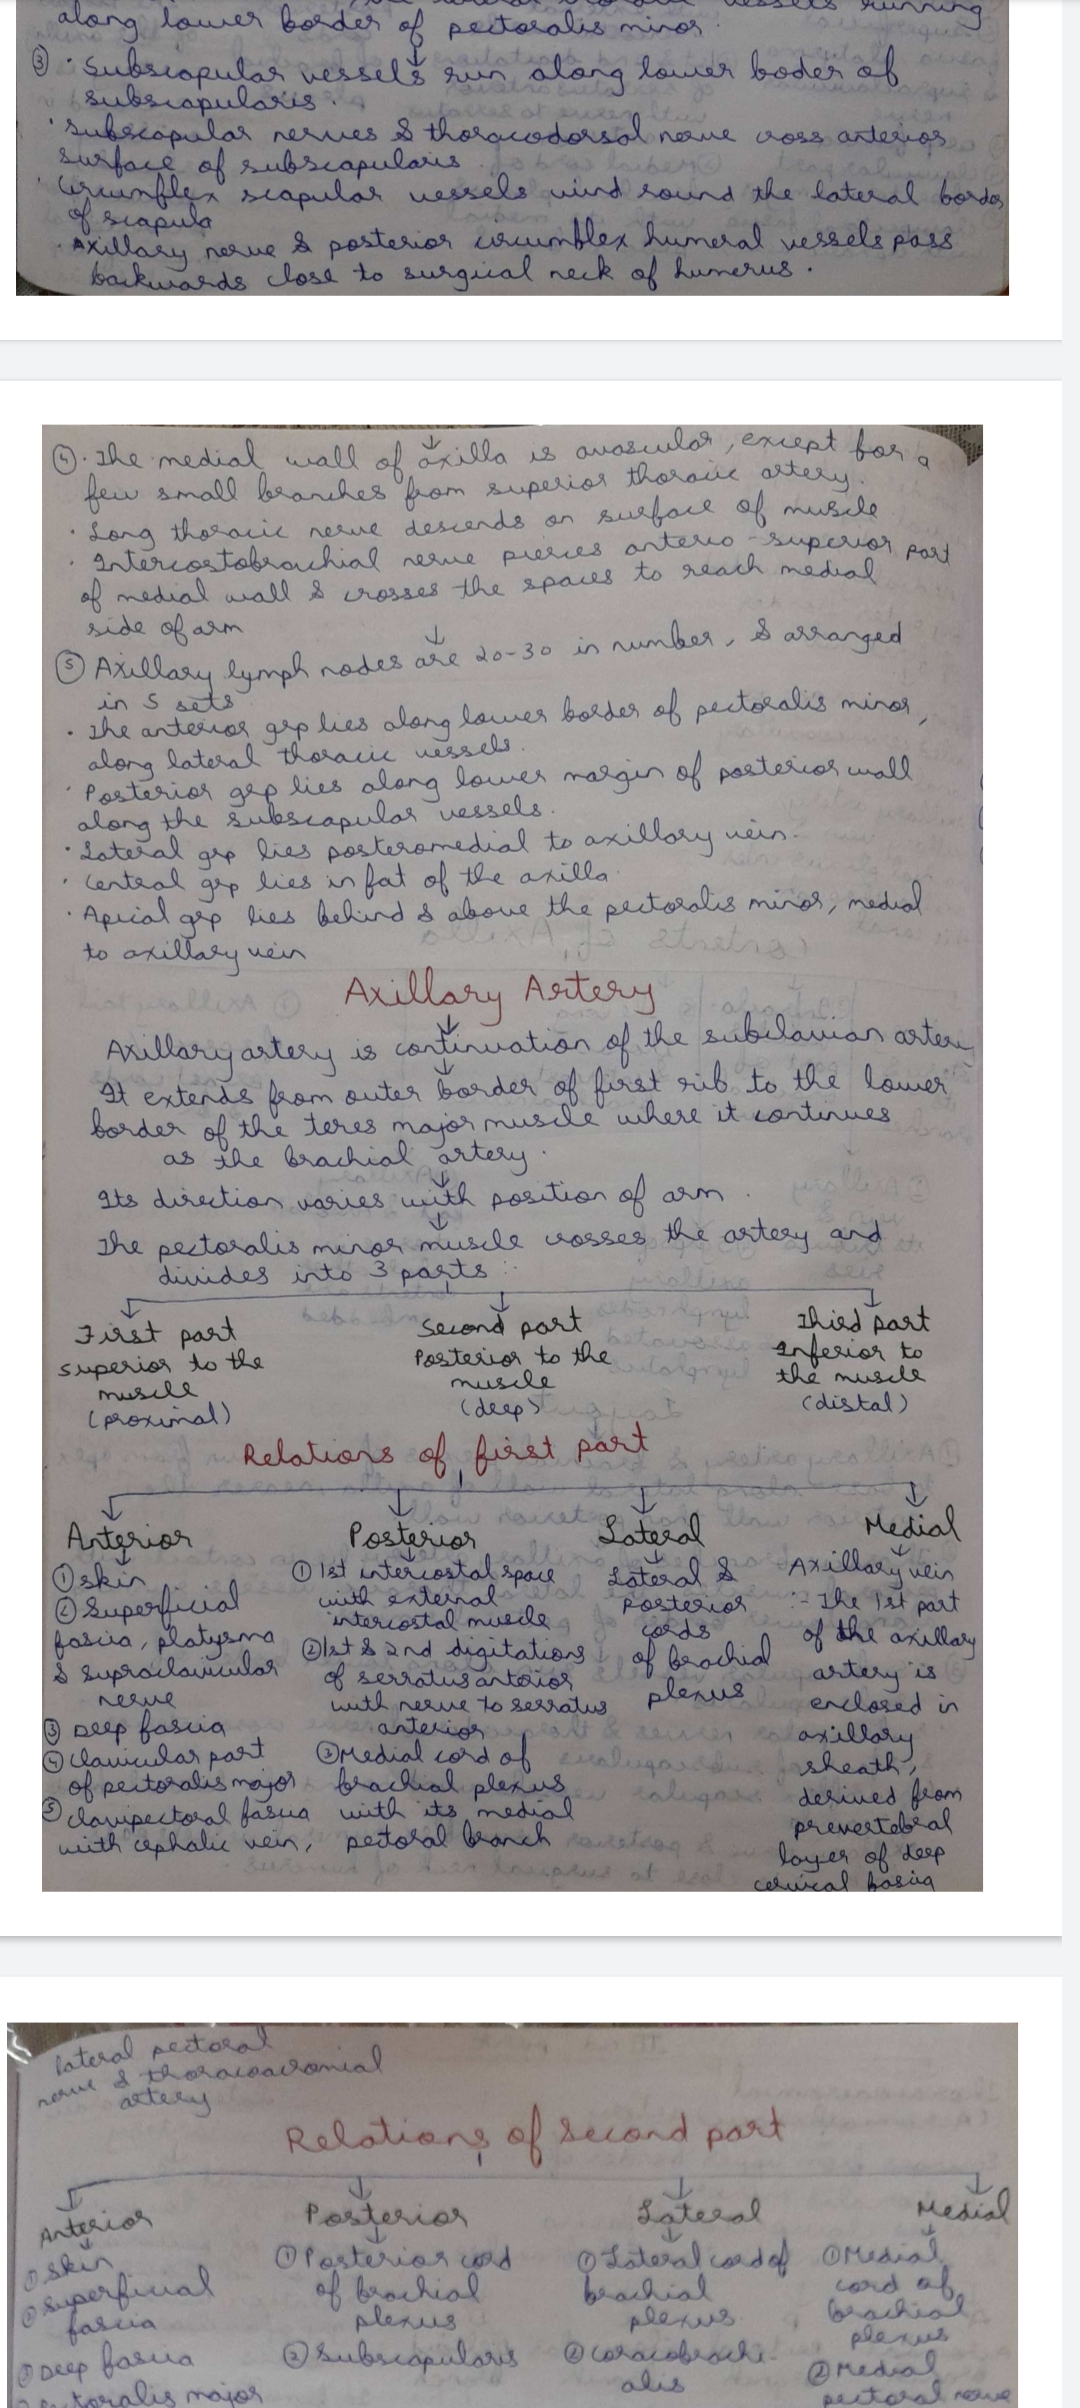 vessels running
along lower border of pectoralis minor.
③ · Subscapular vessels run along lower boder of
subscapularis.
· Subscapular nerves & thoracodorsal nerve cross anterior
surface of subscapularis.
· Circumflex scapular vessels wind round the lateral border
of scapula
· Axillary nerve & posterior circumflex humeral vessels pass
backwards close to surgical neck of humerus.
④ · The medial wall of axilla is avascular, except for a
few small branches from superior thoracic artery.
· Long thoracic nerve descends on surface of muscle
· Intercostobrachial nerve pierces antero-superior part
of medial wall & crosses the spaces to reach medial
side of arm
⑤ Axillary lymph nodes are 20-30 in number, & arranged
in 5 sets
· The anterior grp lies along lower border of pectoralis minor,
along lateral thoracic vessels.
· Posterior grp lies along lower margin of posterior wall
along the subscapular vessels.
· Lateral grp lies posteromedial to axillary vein.
· Central grp lies in fat of the axilla.
· Apical grp lies behind & above the pectoralis minor, medial
to axillary vein
Axillary Artery
Axillary artery is continuation of the subclavian artery
It extends from outer border of first rib to the lower
border of the teres major muscle where it continues
as the brachial artery.
Its direction varies with position of arm.
The pectoralis minor muscle crosses the artery and
divides into 3 parts :-
First part
superior to the
muscle
(proximal)
Second part
Posterior to the
muscle
(deep)
Third part
Inferior to
the muscle
(distal)
Relations of first part
Anterior
① skin
② Superficial
fascia, platysma
& supraclavicular
nerve
③ Deep fascia
④ clavicular part
of pectoralis major
⑤ clavipectoral fascia
with cephalic vein,
Posterior
① 1st intercostal space
with external
intercostal muscle
② 1st & 2nd digitations
of serratus anterior
with nerve to serratus
anterior
③ Medial cord of
brachial plexus
with its medial
pectoral branch
Lateral
Lateral &
posterior
cords
of brachial
plexus
Medial
Axillary vein
:- The 1st part
of the axillary
artery is
enclosed in
axillary
sheath,
derived from
prevertebral
layer of deep
cervical fascia
lateral pectoral
nerve & thoracoacromial
artery
Relations of Second part
Anterior
① skin
② Superficial
fascia
③ Deep fascia
pectoralis major
Posterior
① Posterior cord
of brachial
plexus
② Subscapularis
Lateral
① Lateral cord of
brachial
plexus
② coracobrachi-
alis
Medial
① Medial
cord of
brachial
plexus
② Medial
pectoral nerve